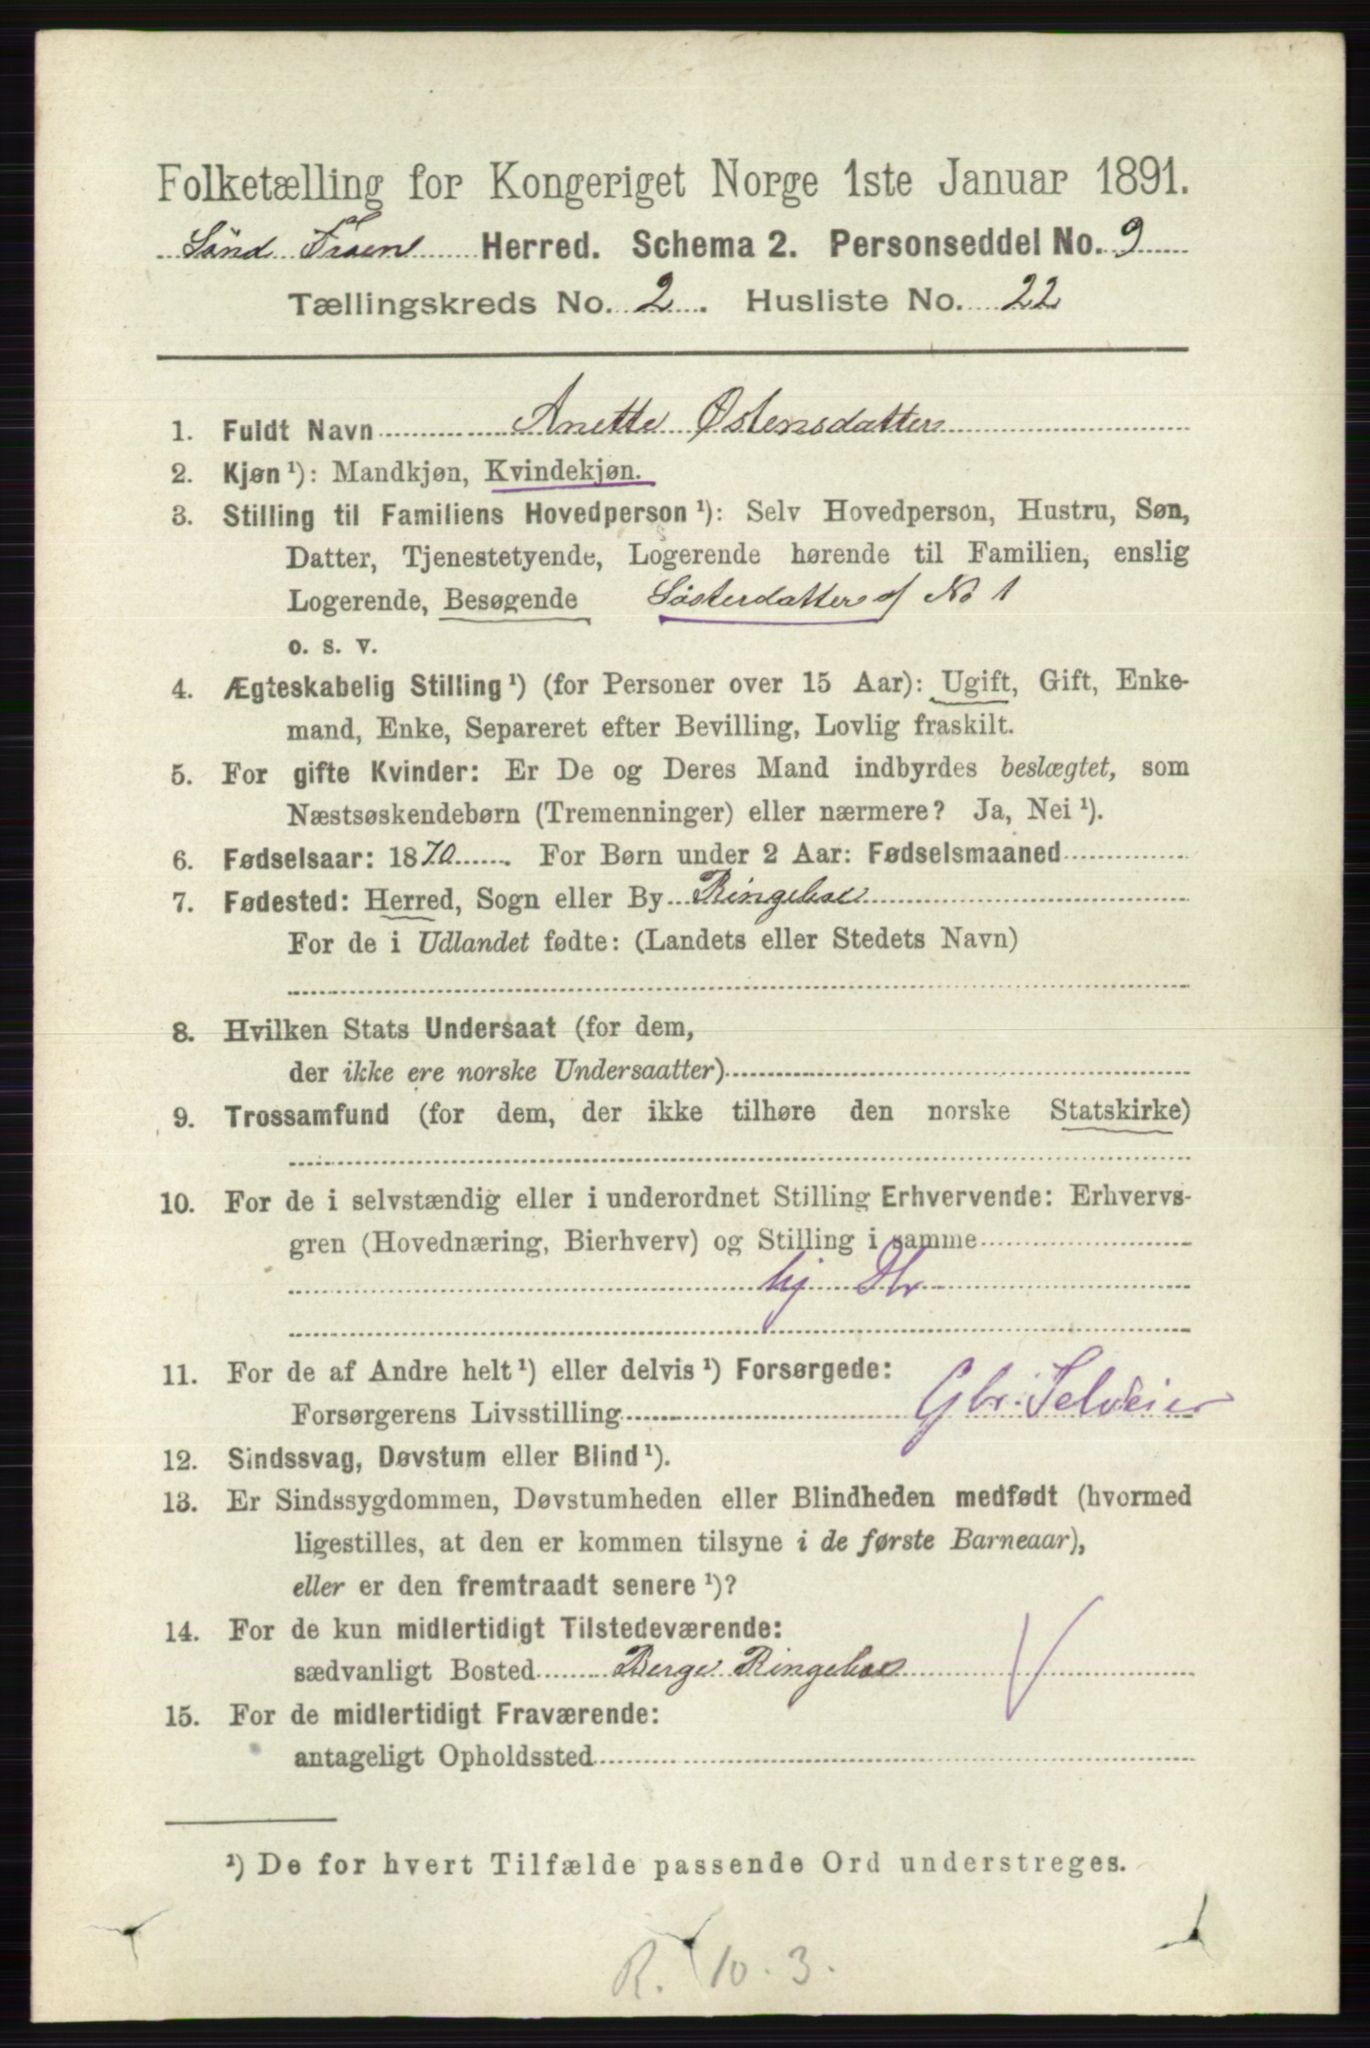 Folketælling for Kongeriget Norge 1ste Januar 1891.
Sönd Froen Herred. Schema 2. Personseddel No. 9
Tællingskreds No. 2. Husliste No. 22
1. Fuldt Navn Anette Østensdatter
2. Kjøn ¹): Mandkjøn, Kvindekjøn.
3. Stilling til Familiens Hovedperson ¹): Selv Hovedperson, Hustru, Søn,
Datter, Tjenestetyende, Logerende hørende til Familien, enslig
Logerende, Besøgende Søsterdatter af No 1
o. s. v.
4. Ægteskabelig Stilling ¹) (for Personer over 15 Aar): Ugift, Gift, Enke-
mand, Enke, Separeret efter Bevilling, Lovlig fraskilt.
5. For gifte Kvinder: Er De og Deres Mand indbyrdes beslægtet, som
Næstsøskendebørn (Tremenninger) eller nærmere? Ja, Nei ¹).
6. Fødselsaar: 1870. For Børn under 2 Aar: Fødselsmaaned
7. Fødested: Herred, Sogn eller By Ringeboe
For de i Udlandet fødte: (Landets eller Stedets Navn)
8. Hvilken Stats Undersaat (for dem,
der ikke ere norske Undersaatter)
9. Trossamfund (for dem, der ikke tilhøre den norske Statskirke)
10. For de i selvstændig eller i underordnet Stilling Erhvervende: Erhvervs-
gren (Hovednæring, Bierhverv) og Stilling i samme
hj
11. For de af Andre helt ¹) eller delvis ¹) Forsørgede:
Forsørgerens Livsstilling Gbr. Selveier
12. Sindssvag, Døvstum eller Blind ¹).
13. Er Sindssygdommen, Døvstumheden eller Blindheden medfødt (hvormed
ligestilles, at den er kommen tilsyne i de første Barneaar),
eller er den fremtraadt senere ¹)?
14. For de kun midlertidigt Tilstedeværende:
sædvanligt Bosted Berge Ringeboe
15. For de midlertidigt Fraværende:
antageligt Opholdssted
¹) De for hvert Tilfælde passende Ord understreges.
R. 10. 3.